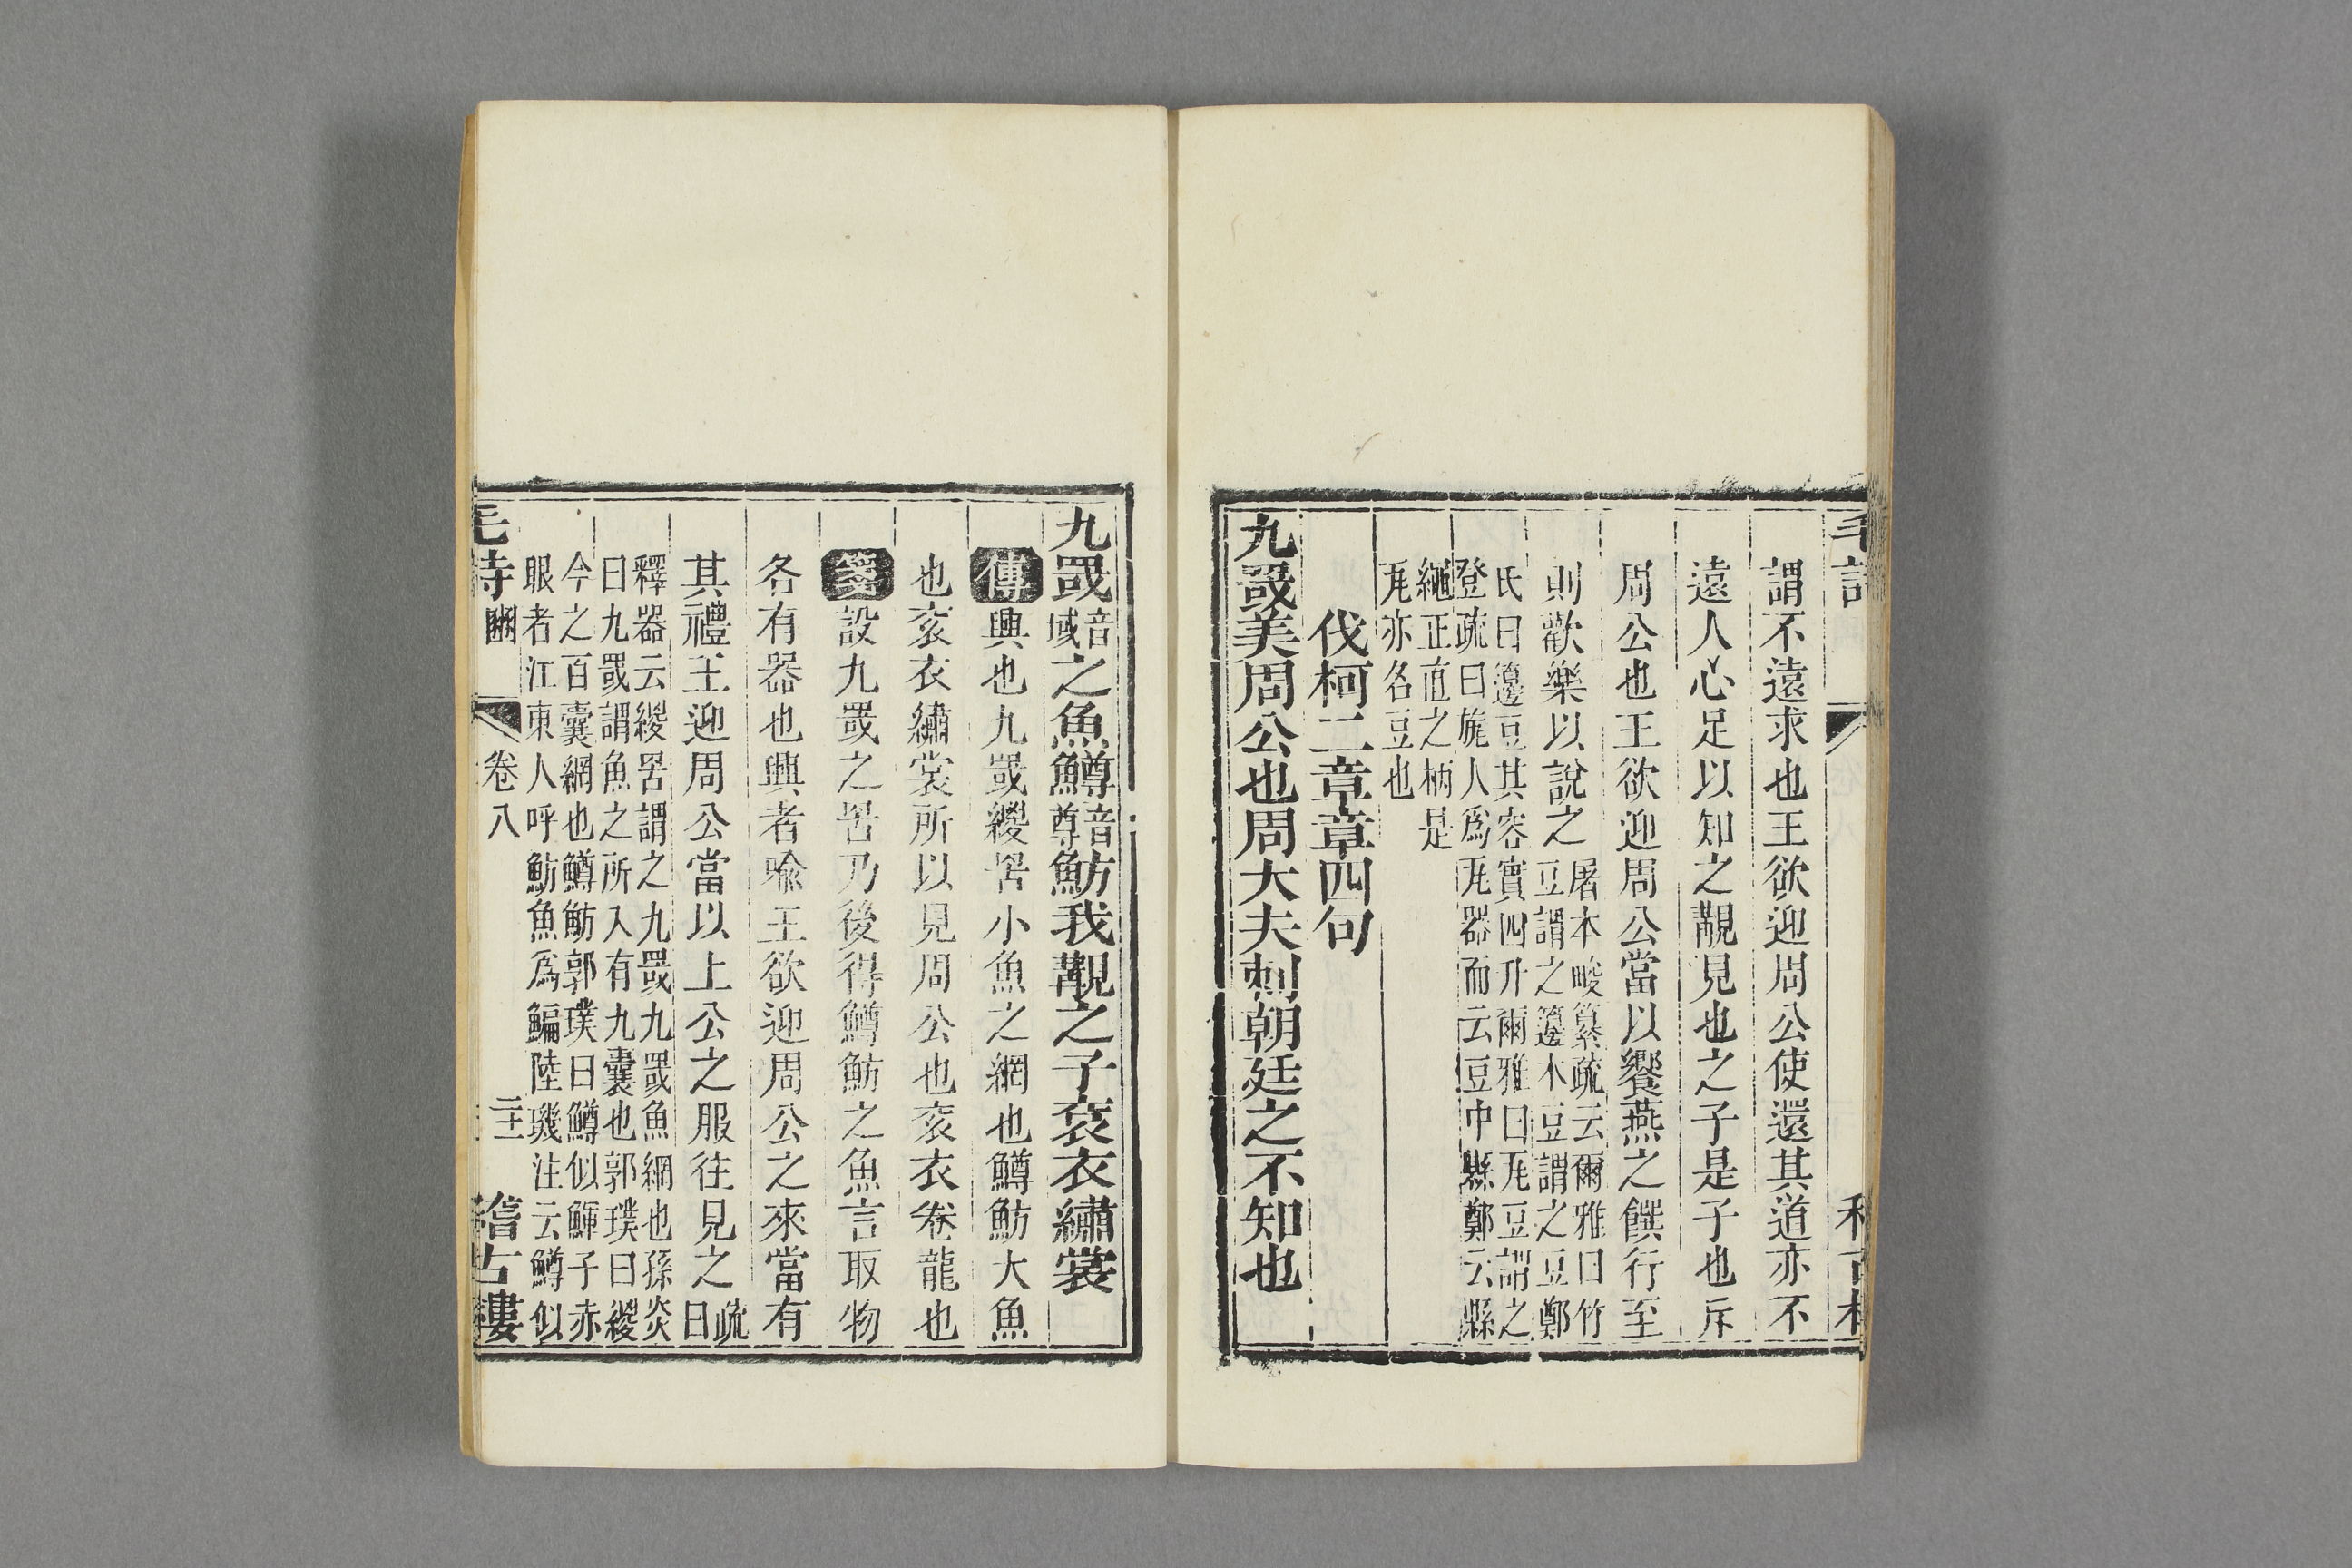 謂不遠求也王欲迎周公使還其道亦不
遠人心足以知之覯見也之子是子也斥
周公也王欲迎周公當以饗燕之饌行至
則歡樂以說之屠本畯纂疏云爾雅曰竹
豆謂之籩木豆謂之豆鄭
氏曰籩豆其容實四升爾雅曰㼚豆謂之
登疏曰旊人爲㼚器而云豆中縣鄭云縣
繩正直之柄是
㼚亦名豆也
伐柯二章章四句
九罭美周公也周大夫刺朝廷之不知也
九罭音域之魚鱒音尊魴我覯之子袞衣繡裳
傳興也九罭緵罟小魚之網也鱒魴大魚
也袞衣繡裳所以見周公也袞衣卷龍也
箋設九罭之罟乃後得鱒魴之魚言取物
各有器也興者喩王欲迎周公之來當有
其禮王迎周公當以上公之服往見之疏曰
釋器云緵罟謂之九罭九罭魚網也孫炎
曰九罭謂魚之所入有九囊也郭璞曰緵
今之百囊網也鱒魴郭璞曰鱒似鯶子赤
眼者江東人呼魴魚爲鯿陸璣注云鱒似
毛詩 豳 卷八 稽古樓